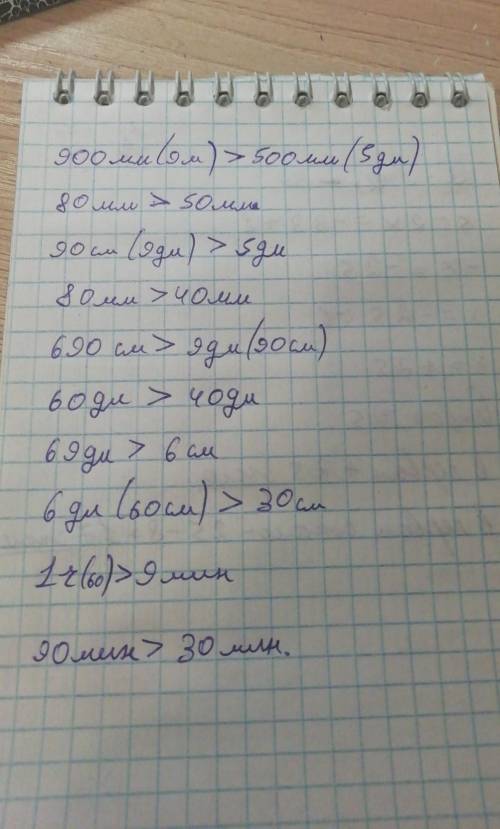 900мм(9м)>500мм(5дм)
80мм>50мм.
90см(9дм)>5дм
80мм>40мм
690см>9дм(90см)
60дм>40дм
69дм>6см
6дм(60см)>30см
1ч(60)>9мин
90мин>30мин.